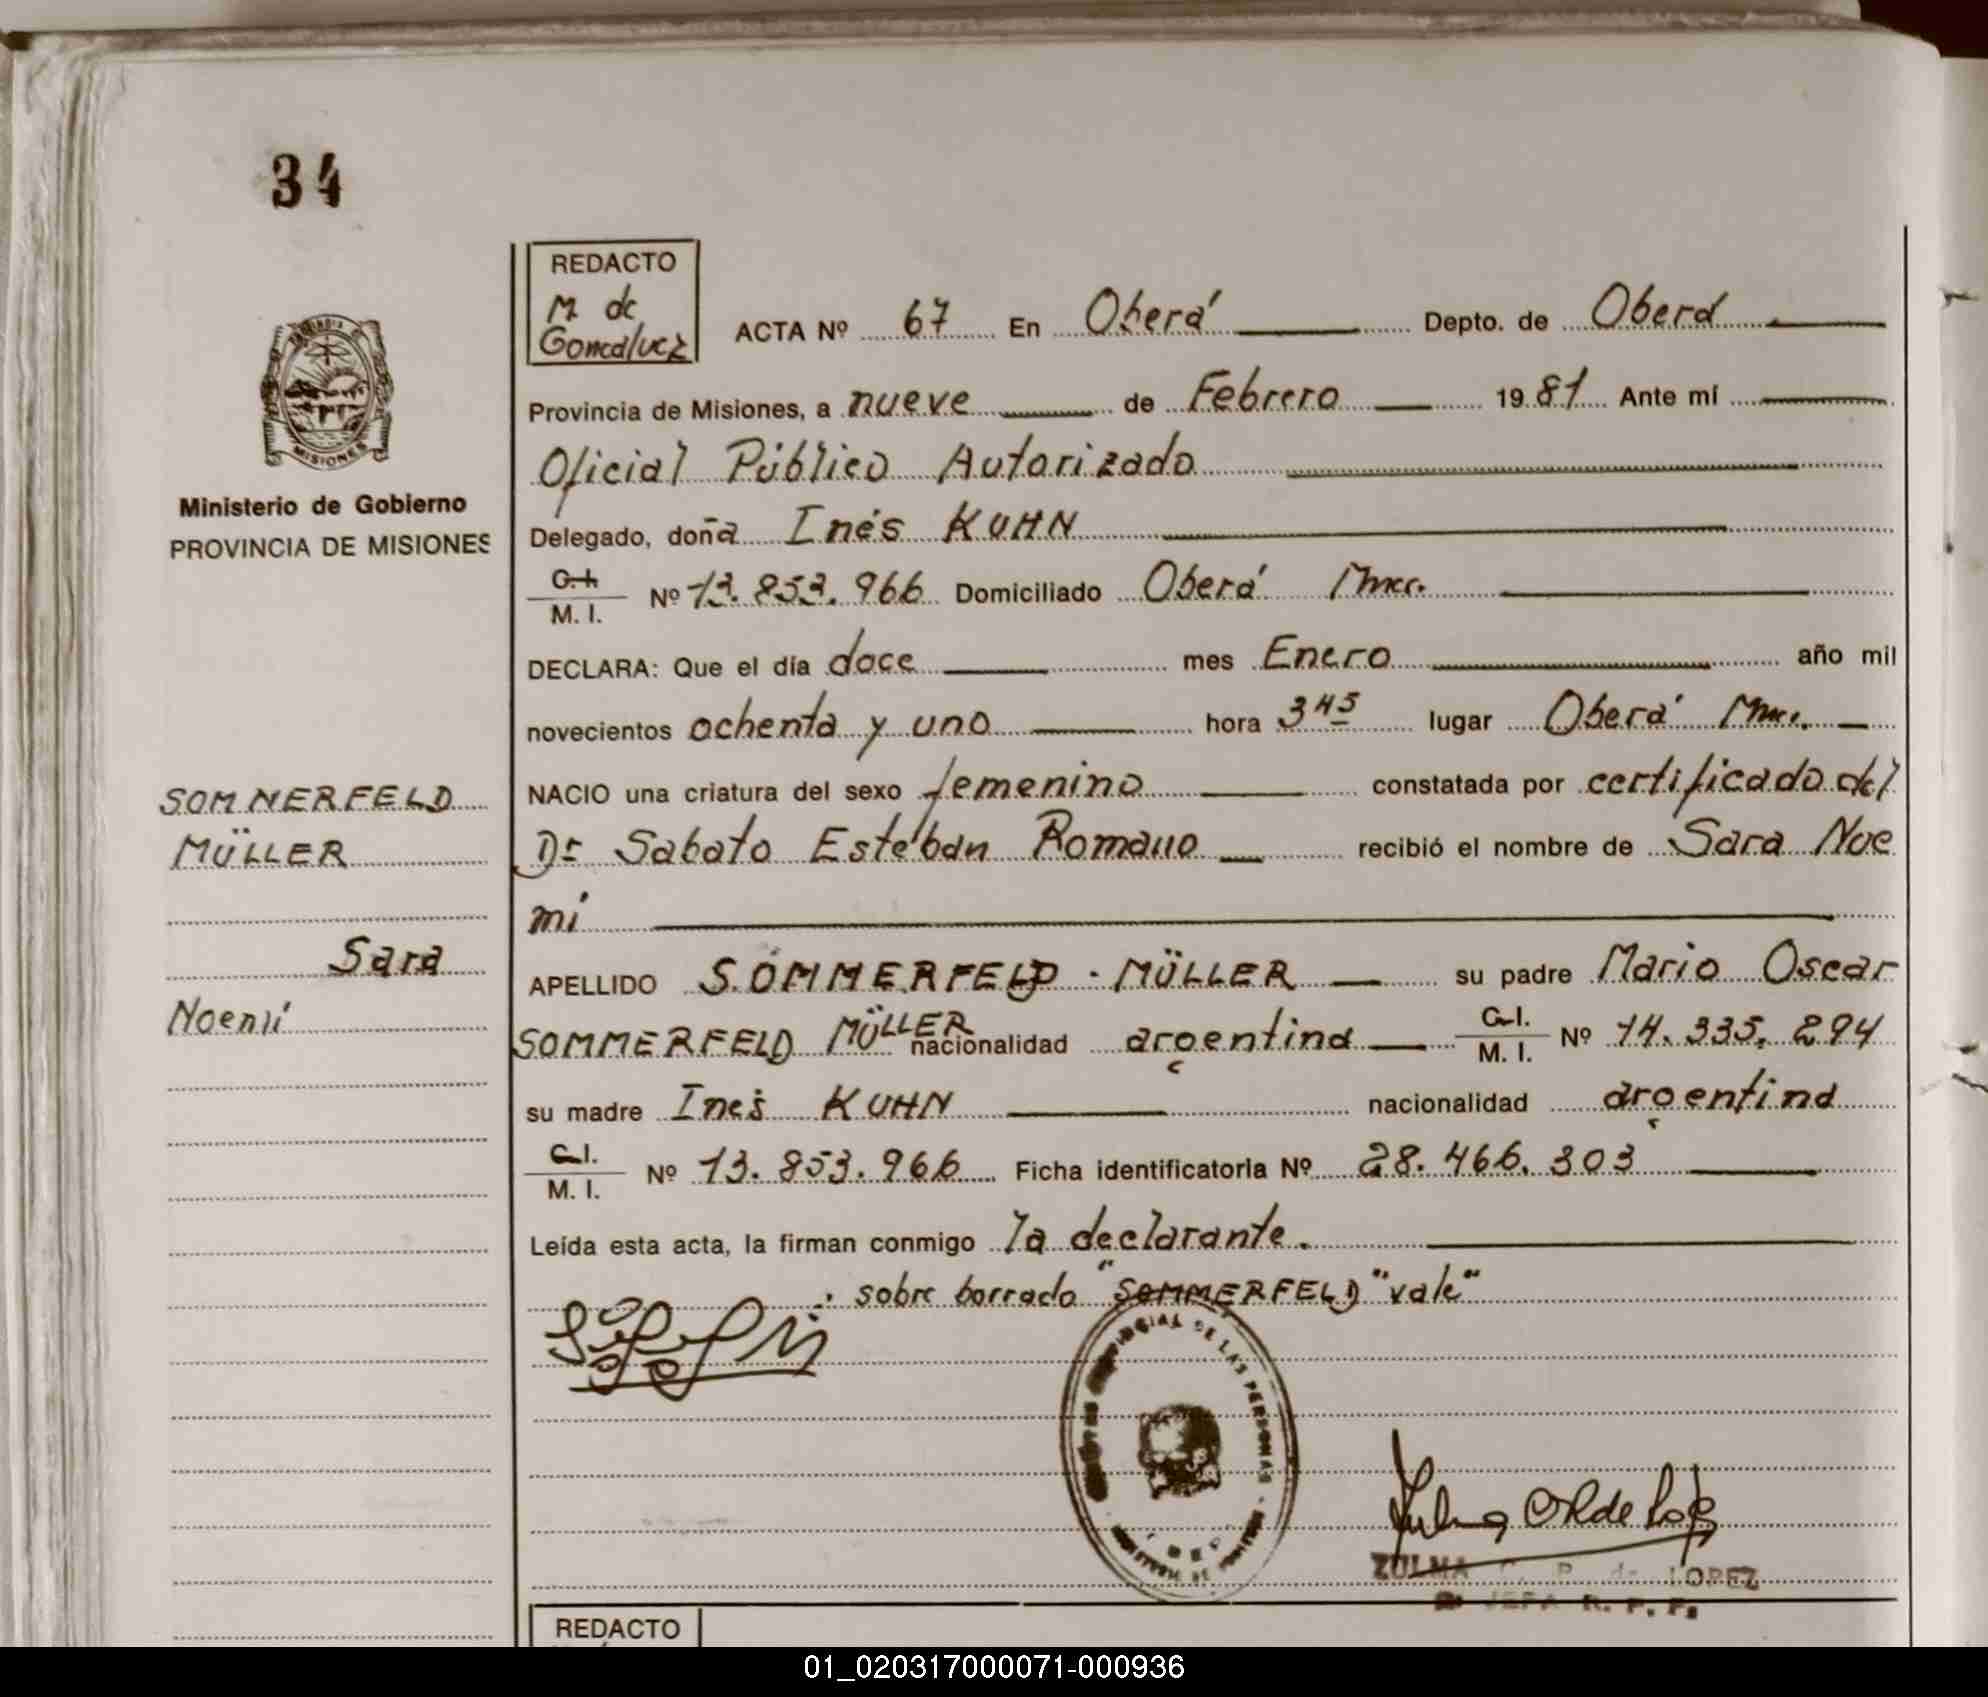 34
REDACTO
M de
Goncalvez
ACTA Nº 67 En Oberá Depto. de Oberá
Provincia de Misiones, a nueve de Febrero 1981 Ante mí
Oficial Público Autorizado
Delegado, doña Inés KUHN
C.I. M. I. Nº 13.853.966 Domiciliado Oberá Mnes.
DECLARA: Que el día doce mes Enero año mil
novecientos ochenta y uno hora 3 45 lugar Oberá Mnes.
NACIO una criatura del sexo femenino constatada por certificado del
Dr Sabato Esteban Romano recibió el nombre de Sara Noe
mí
APELLIDO SOMMERFELD - MÜLLER su padre Mario Oscar
SOMMERFELD MÜLLER nacionalidad argentina C.I. M. I. Nº 14.335.294
su madre Inés KUHN nacionalidad argentina
C.I. M. I. Nº 13.853.966 Ficha identificatoria Nº 28.466.303
Leída esta acta, la firman conmigo la declarante.
: sobre borrado "SOMMERFELD" vale"
MISIONES
Ministerio de Gobierno
PROVINCIA DE MISIONES
SOMMERFELD
MÜLLER
Sara
Noemí
PROVINCIAL DE LAS PERSONAS
ZULMA C. P. de LOPEZ
JEFA R. P. P.
REDACTO
01_020317000071-000936